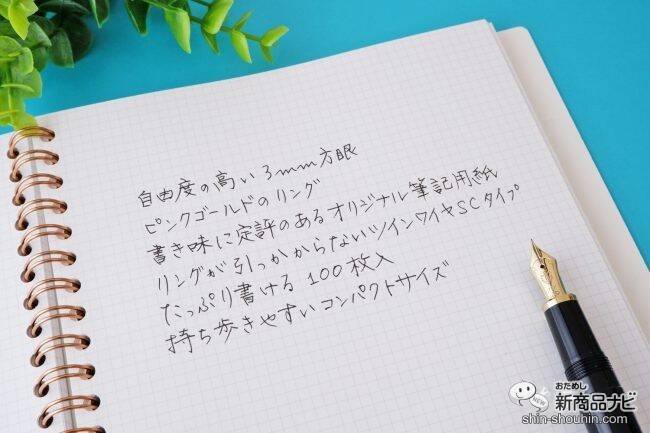 自由度の高い3mm方眼
ピンクゴールドのリング
書き味に定評のあるオリジナル筆記用紙
リングが引っかからないツインワイヤSCタイプ
たっぷり書ける 100枚入
持ち歩きやすいコンパクトサイズ
NEW
おためし
新商品ナビ
shin-shouhin.com